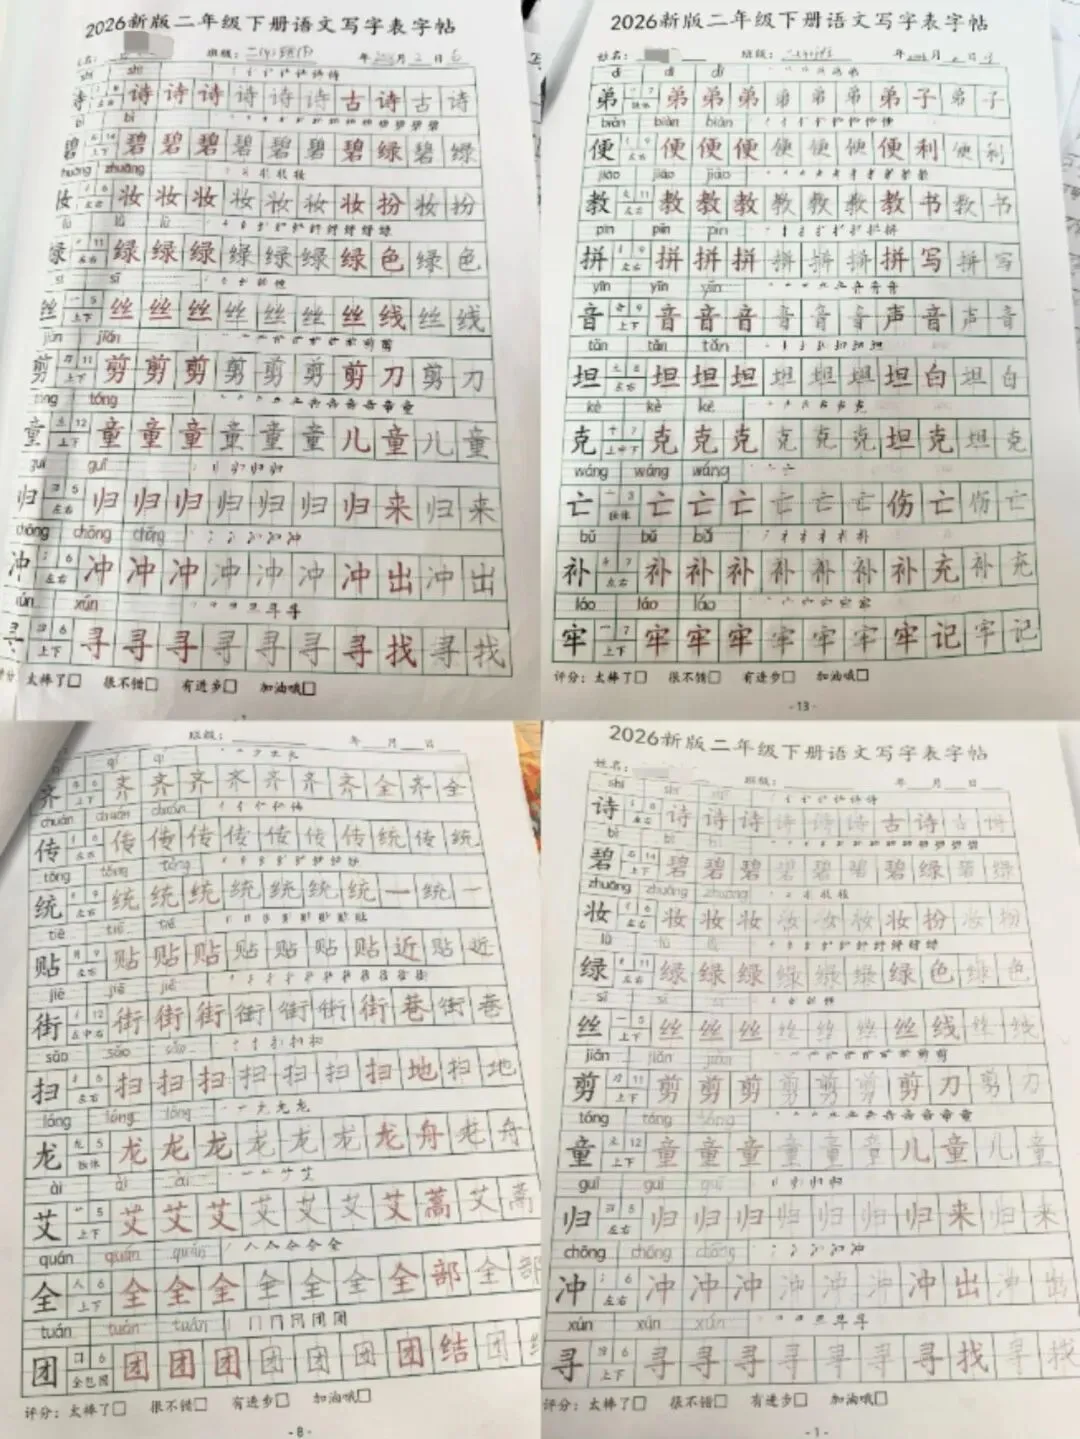 2026新版二年级下册语文写字表字帖
班级: 二(4)班 年 2 月 日
shī shī
诗 诗 诗 诗 诗 诗 诗 古 诗 古 诗
bì bì
碧 上下 14 碧 碧 碧 碧 碧 碧 碧 绿 碧 绿
zhuāng zhuāng
妆 6 左右 妆 妆 妆 妆 妆 妆 妆 扮 妆 扮
lǜ lǜ lǜ
绿 11 左右 绿 绿 绿 绿 绿 绿 绿 色 绿 色
sī sī
丝 一 5 上下 丝 丝 丝 丝 丝 丝 丝 线 丝 线
jiǎn jiǎn
剪 11 上下 剪 剪 剪 剪 剪 剪 剪 刀 剪 刀
tóng tóng
童 立 12 上下 童 童 童 童 童 童 儿 童 儿 童
guī guī
归 5 左右 归 归 归 归 归 归 归 来 归 来
chōng chōng chōng
冲 6 左右 冲 冲 冲 冲 冲 冲 冲 出 冲 出
xún xún
寻 6 上下 寻 寻 寻 寻 寻 寻 寻 找 寻 找
评分: 太棒了□ 很不错□ 有进步□ 加油哦□
2026新版二年级下册语文写字表字帖
姓名: 班级: 年 月 日
dì dì dì
弟 7 独体 弟 弟 弟 弟 弟 弟 弟 子 弟 子
biàn biàn biàn
便 9 左右 便 便 便 便 便 便 便 利 便 利
jiāo jiāo jiāo
教 11 左右 教 教 教 教 教 教 教 书 教 书
pīn pīn pīn
拼 9 左右 拼 拼 拼 拼 拼 拼 拼 写 拼 写
yīn yīn yīn
音 9 上下 音 音 音 音 音 音 声 音 声 音
tǎn tǎn tǎn
坦 8 左右 坦 坦 坦 坦 坦 坦 坦 白 坦 白
kè kè kè
克 十 7 上中下 克 克 克 克 克 克 坦 克 坦 克
wáng wáng wáng
亡 3 独体 亡 亡 亡 亡 亡 亡 伤 亡 伤 亡
bǔ bǔ bǔ
补 7 左右 补 补 补 补 补 补 补 充 补 充
láo láo láo
牢 7 上下 牢 牢 牢 牢 牢 牢 牢 记 牢 记
评分: 太棒了□ 很不错□ 有进步□ 加油哦□
- 13 -
班级: 年 月 日
qí qí
齐 6 上下 齐 齐 齐 齐 齐 齐 齐 全 齐 全
chuán chuán chuán
传 6 左右 传 传 传 传 传 传 传 统 传 统
tǒng tǒng tǒng
统 9 左右 统 统 统 统 统 统 统 一 统 一
tiē tiē tiē
贴 9 左右 贴 贴 贴 贴 贴 贴 贴 近 贴 近
jiē jiē jiē
街 12 左中右 街 街 街 街 街 街 街 巷 街 巷
sǎo sǎo sǎo
扫 6 左右 扫 扫 扫 扫 扫 扫 扫 地 扫 地
lóng lóng lóng
龙 5 独体 龙 龙 龙 龙 龙 龙 龙 舟 龙 舟
ài ài ài
艾 5 上下 艾 艾 艾 艾 艾 艾 艾 蒿 艾 蒿
quán quán quán
全 人 6 上下 全 全 全 全 全 全 全 部 全 部
tuán tuán tuán
团 6 全包围 团 团 团 团 团 团 团 结 团
评分: 太棒了□ 很不错□ 有进步□ 加油哦□
- 8 -
2026新版二年级下册语文写字表字帖
姓名: 班级: 年 月 日
shī shī shī
诗 8 左右 诗 诗 诗 诗 诗 诗 古 诗 古 诗
bì bì bì
碧 14 上下 碧 碧 碧 碧 碧 碧 碧 绿 碧 绿
zhuāng zhuāng zhuāng
妆 6 左右 妆 妆 妆 妆 妆 妆 妆 扮 妆 扮
lǜ lǜ lǜ
绿 11 左右 绿 绿 绿 绿 绿 绿 绿 色 绿 色
sī sī sī
丝 一 5 上下 丝 丝 丝 丝 丝 丝 丝 线 丝 线
jiǎn jiǎn jiǎn
剪 11 上下 剪 剪 剪 剪 剪 剪 剪 刀 剪 刀
tóng tóng tóng
童 立 12 上下 童 童 童 童 童 童 儿 童 儿 童
guī guī guī
归 5 左右 归 归 归 归 归 归 归 来 归 来
chōng chōng chōng
冲 6 左右 冲 冲 冲 冲 冲 冲 冲 出 冲 出
xún xún xún
寻 6 上下 寻 寻 寻 寻 寻 寻 寻 找 寻 找
评分: 太棒了□ 很不错□ 有进步□ 加油哦□
- 1 -